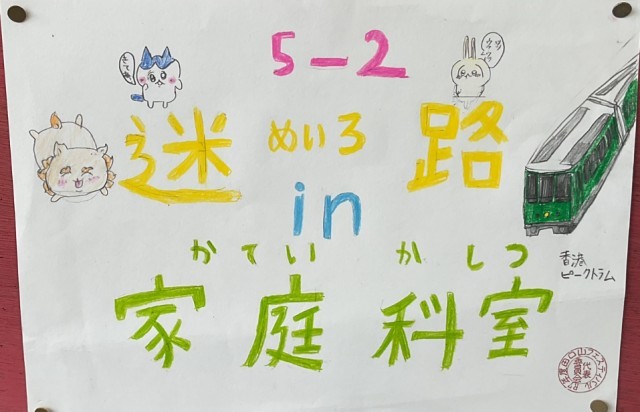 5-2
迷路
めいろ
in
かていかしつ
家庭科室
香港
ピークトラム